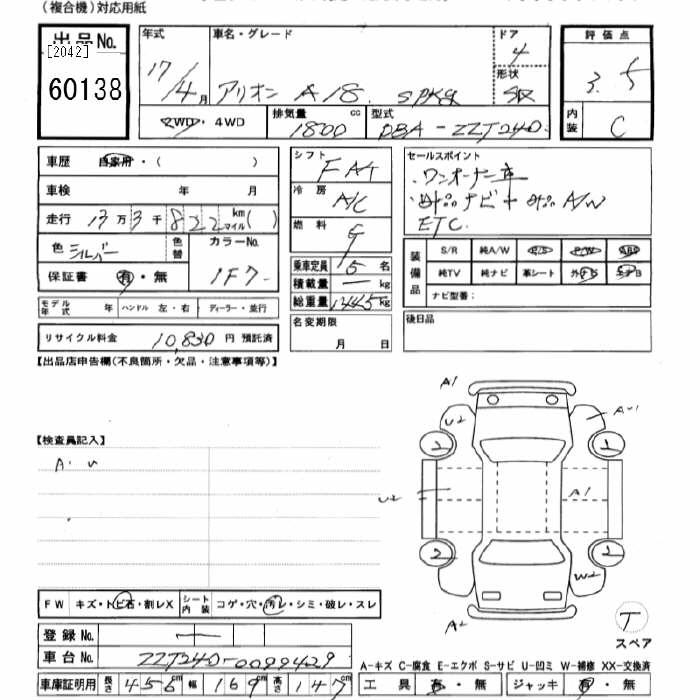 (複合機)対応用紙
出品No.
[2042]
60138
年式
17/4月
車名・グレード
アリオン A18. SPKg
ドア
4
形状
評価点
3.5
内装
C
2WD・4WD
排気量
1800 cc
型式
DBA-ZZT240
車歴 自家用・( )
車検 年 月
走行 13万3千822 km マイル ( )
色 シルバー
色替
カラーNo.
1F7
保証書 有・無
モデル年式 年
ハンドル 左・右
ディーラー・並行
リサイクル料金 10,830円 預託済
シフト
FAT
冷房
A/C
燃料
G
乗車定員 5名
積載量 ー kg
総重量 1445 kg
名変期限
月 日
セールスポイント
・ワンオーナー車
・純正ナビ+純正A/W
ETC.
装備品
S/R 純A/W P/S P/W ABS
純TV 純ナビ 革シート 外ナビ エアB
ナビ型番:
後日品
【出品店申告欄(不良箇所・欠品・注意事項等)】
【検査員記入】
A・U
A1
U2
A-1
2
1
U2
A1
2
2
W2
A2
T
スペア
FW キズ・トビ石・割レX
シート内装 コゲ・穴・汚レ・シミ・破レ・スレ
登録No. ー
車台No. ZZT240-0099429
車庫証明用 長さ 456cm 幅 169cm 高さ 147cm
A-キズ C-腐食 E-エクボ S-サビ U-凹ミ W-補修 XX-交換済
工具 有・無 ジャッキ 有・無